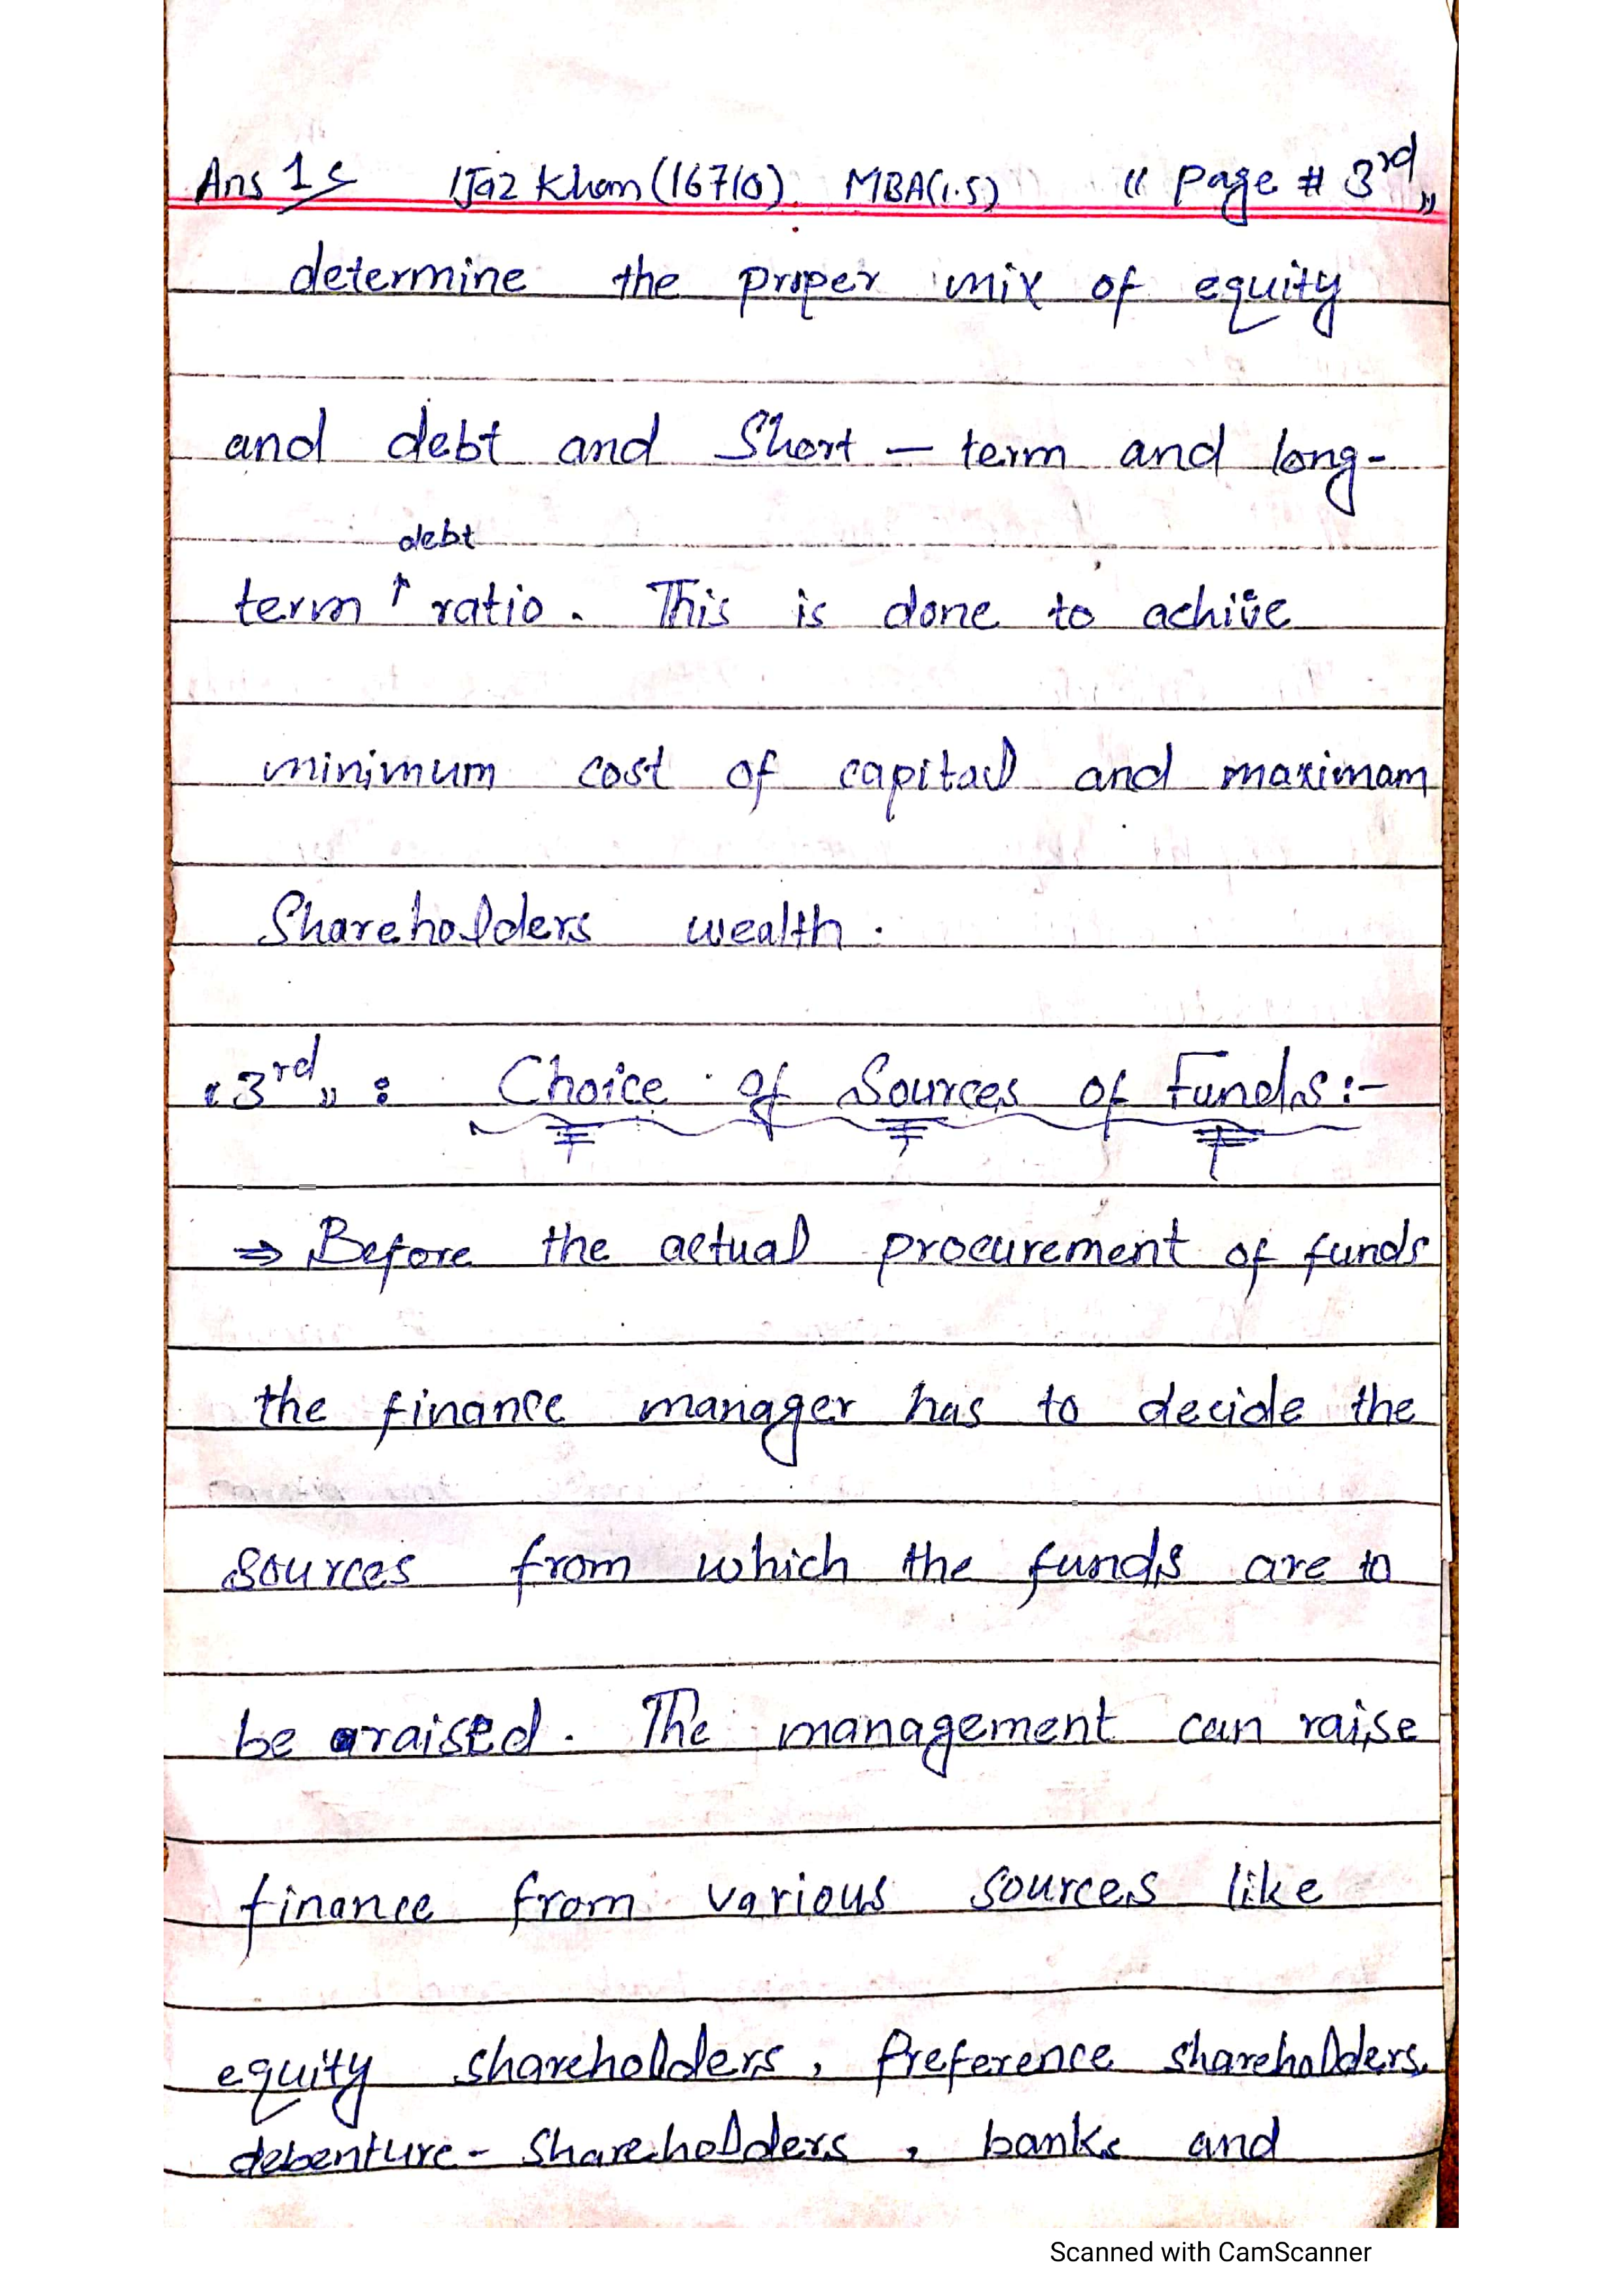 Ans 1 IJaz Khan (16710). MBA(1.5) " Page # 3rd "
determine the proper mix of equity
and debt and Short - term and long-
debt
term ↑ ratio. This is done to achive
minimum cost of capital and maximam
Shareholders wealth.
"3rd" : Choice of Sources of Funds:-
⇒ Before the actual procurement of funds
the finance manager has to decide the
sources from which the funds are to
be raised. The management can raise
finance from various sources like
equity shareholders, Preference shareholders,
debenture - Shareholders, banks and
Scanned with CamScanner